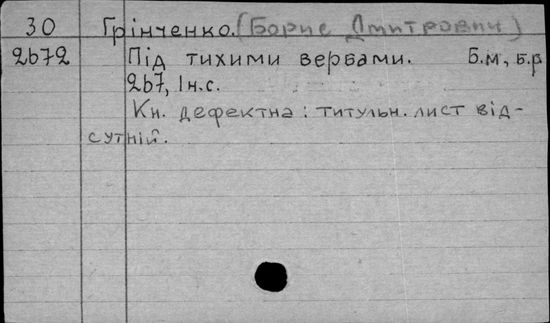 30 Грінченко. (Борис Дмитрович)
2672 Під тихими вербами. Б.м, б.р
267, 1н.с.
Кн. дефектна: титульн. лист від-
сутній.